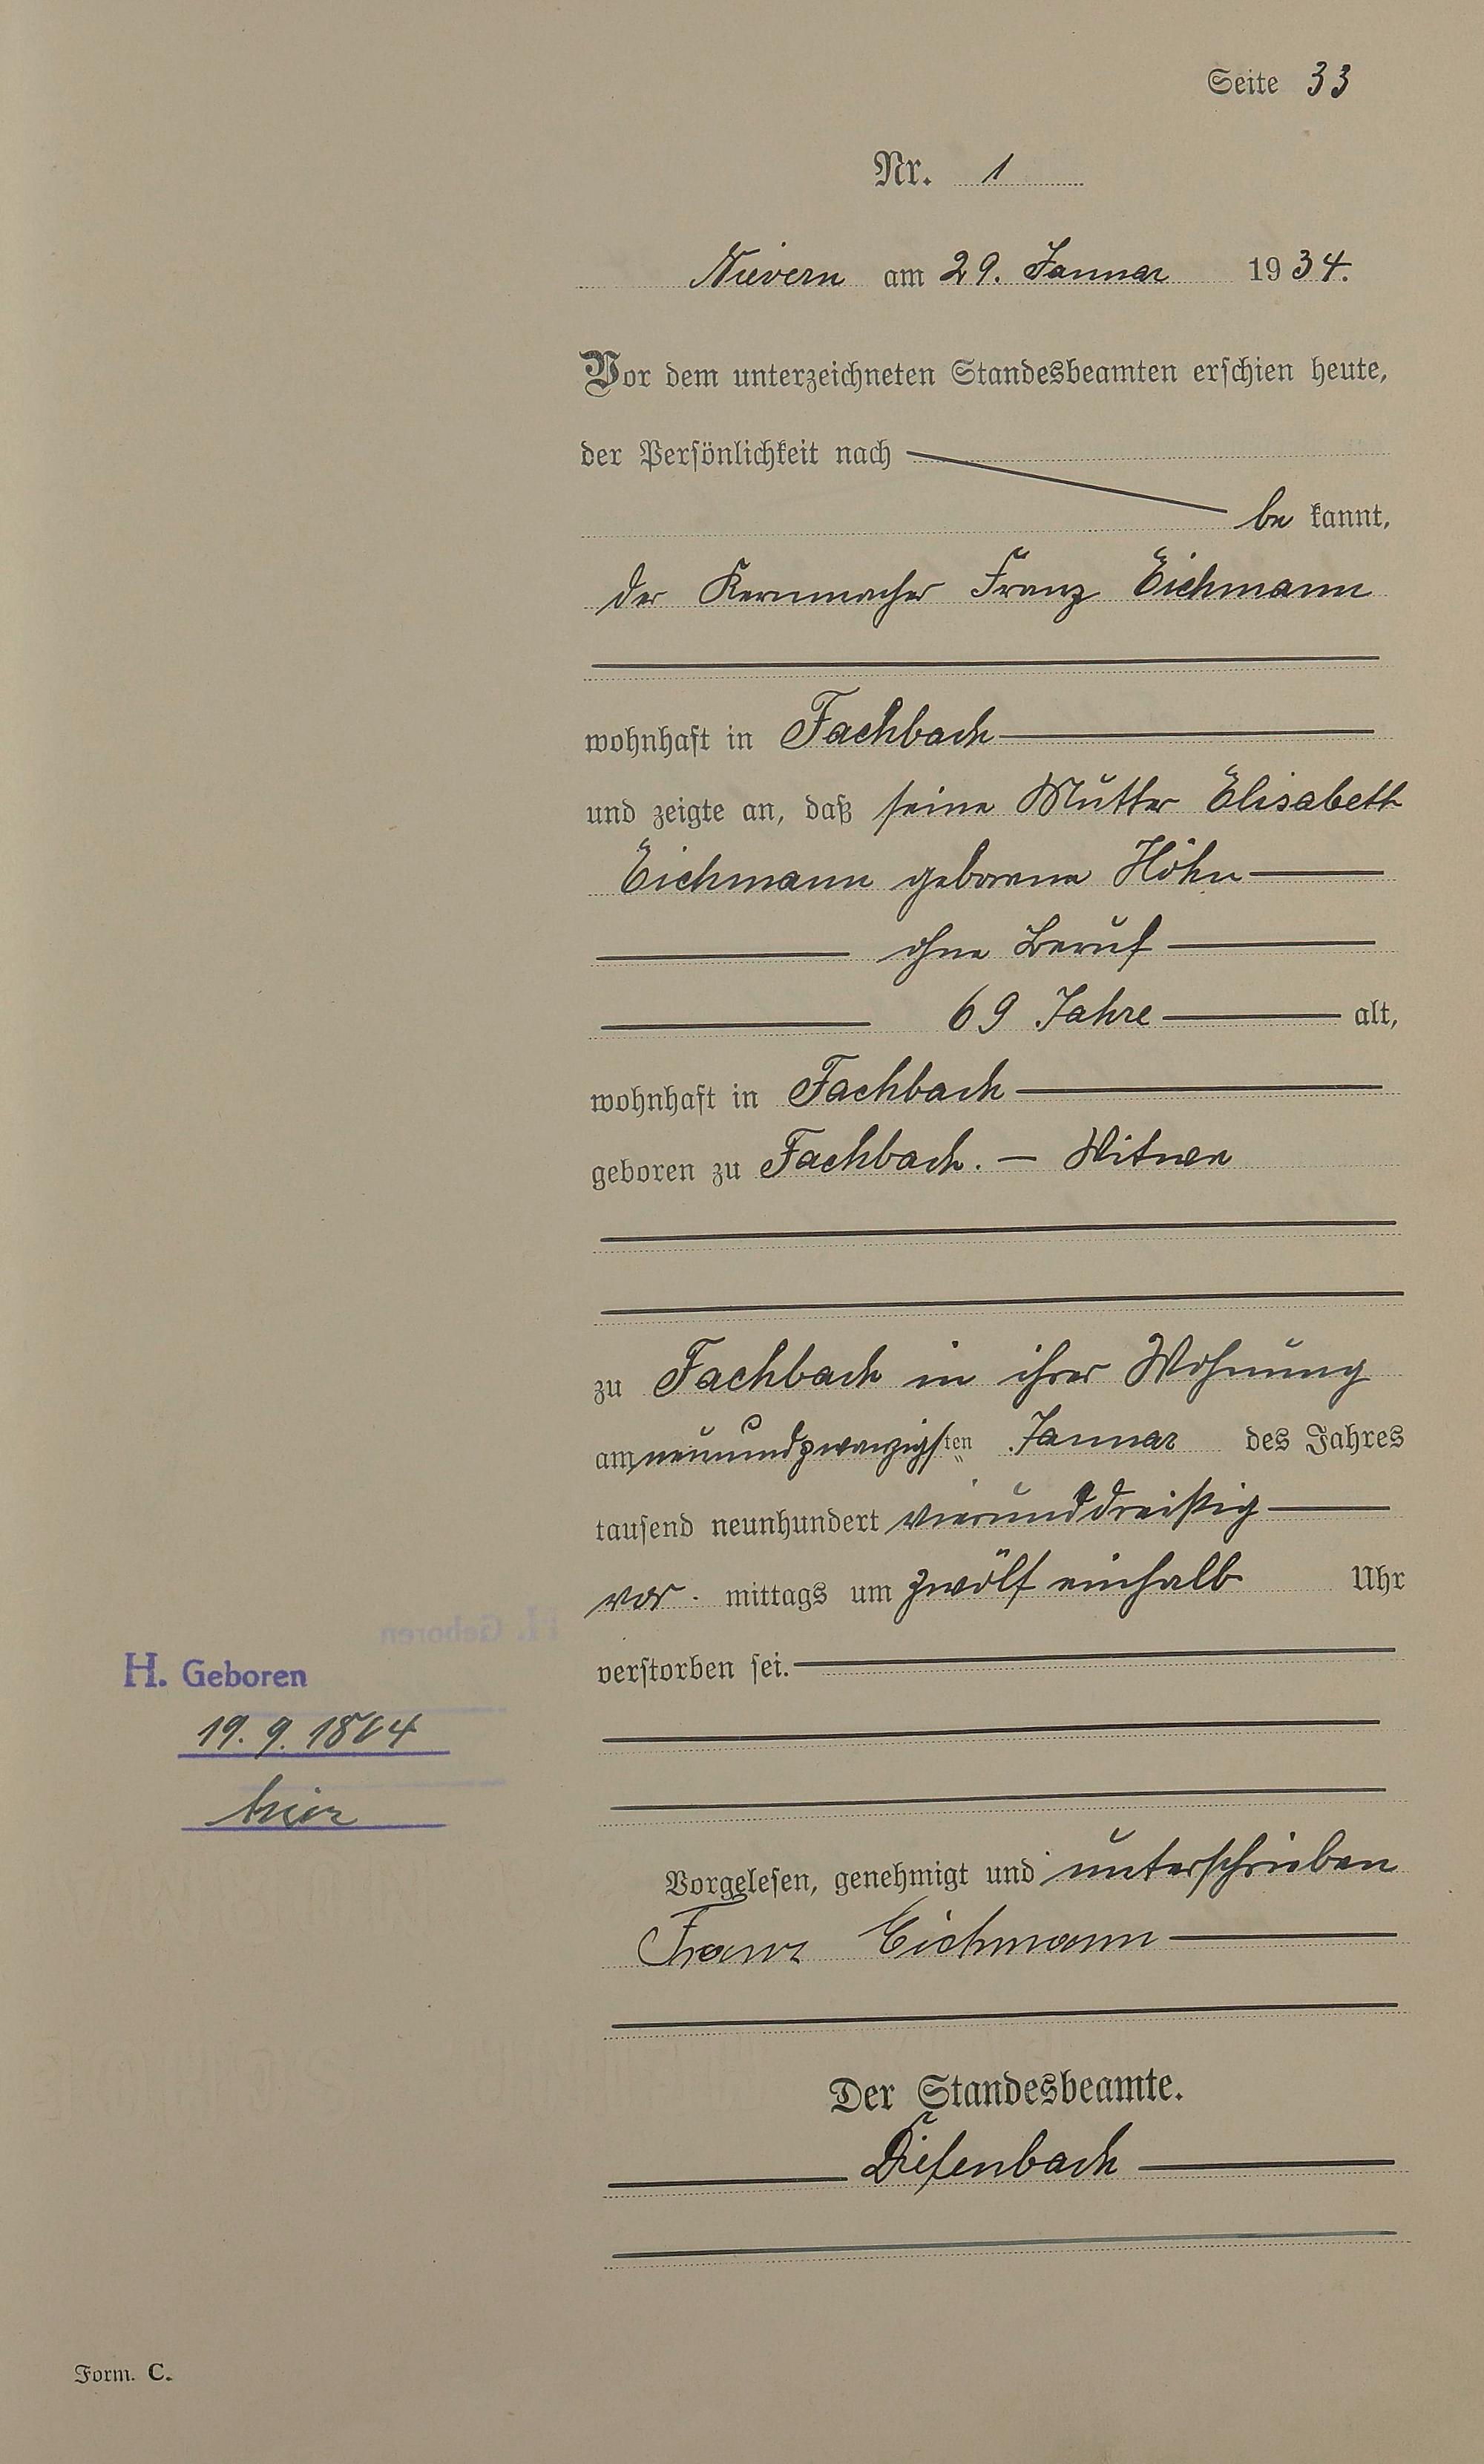 Seite 33
Nr. 1
Nievern am 29. Januar 1934.
Vor dem unterzeichneten Standesbeamten erschien heute,
der Persönlichkeit nach
be kannt,
der Kernmacher Franz Eichmann
wohnhaft in Fachbach
und zeigte an, daß seine Mutter Elisabeth
Eichmann geborene Höhn
ohne Beruf
69 Jahre alt,
wohnhaft in Fachbach
geboren zu Fachbach. — Witwe
zu Fachbach in ihrer Wohnung
am neunundzwanzigsten Januar des Jahres
tausend neunhundert vierunddreißig
vor. mittags um zwölf einhalb Uhr
verstorben sei.
H. Geboren
19. 9. 1864
hier
Vorgelesen, genehmigt und unterschrieben
Franz Eichmann
Der Standesbeamte.
Diefenbach
Form. C.